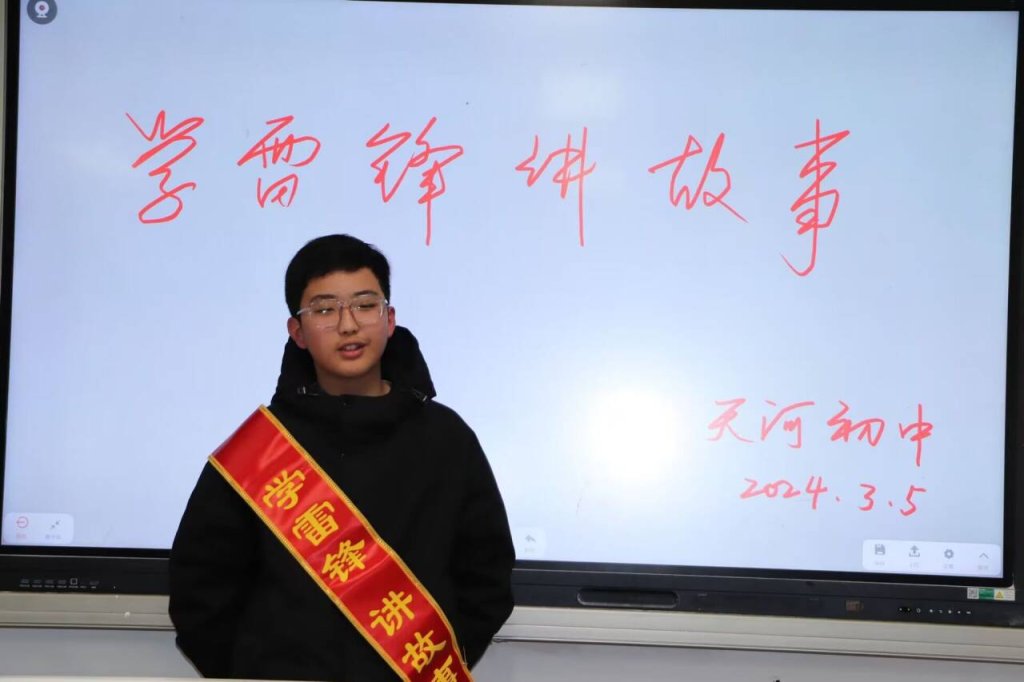 学雷锋讲故事
天河初中
2024.3.5
学雷锋讲故事